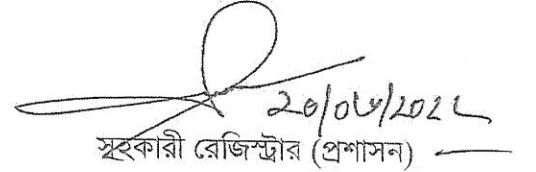 ২০/০৬/২০২২
সহকারী রেজিস্ট্রার (প্রশাসন)